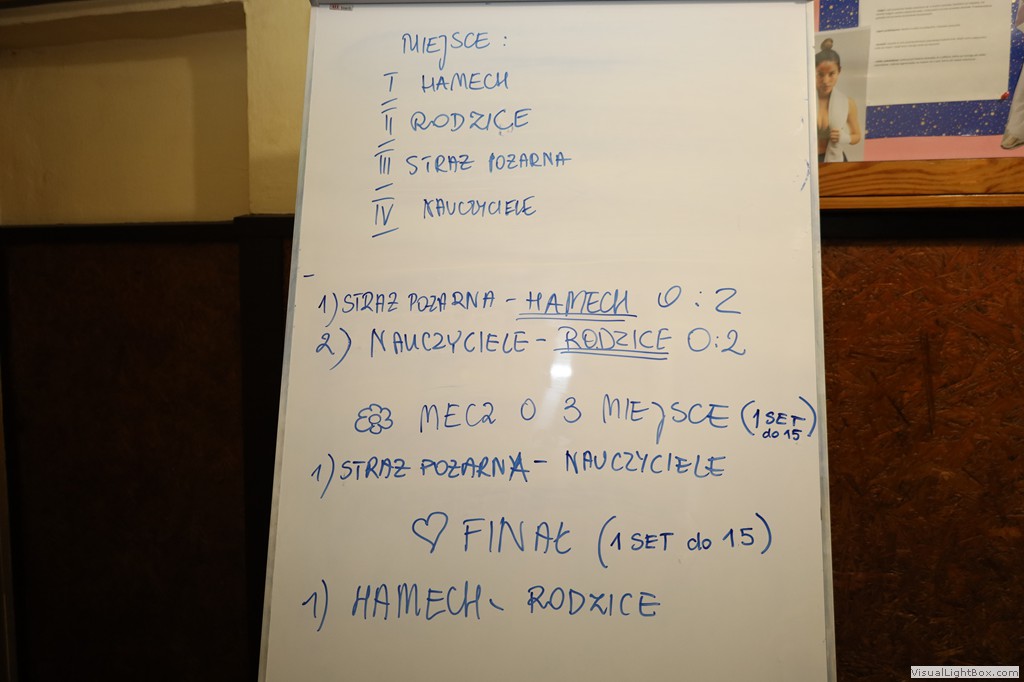 MIEJSCE :
I HAMECH
II RODZICE
III STRAŻ POŻARNA
IV NAUCZYCIELE
1) STRAŻ POŻARNA - HAMECH 0 : 2
2) NAUCZYCIELE - RODZICE 0:2
MECZ O 3 MIEJSCE (1 SET do 15)
1) STRAŻ POŻARNA - NAUCZYCIELE
FINAŁ (1 SET do 15)
1) HAMECH - RODZICE
VisualLightBox.com